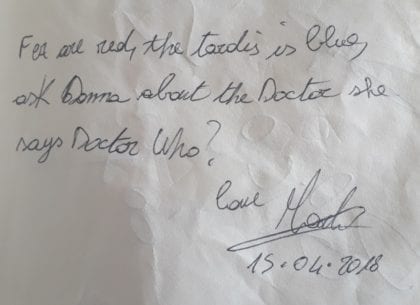 Fez are red, the tardis is blue,
ask Donna about the Doctor she
says Doctor Who?
Love
15.04.2018